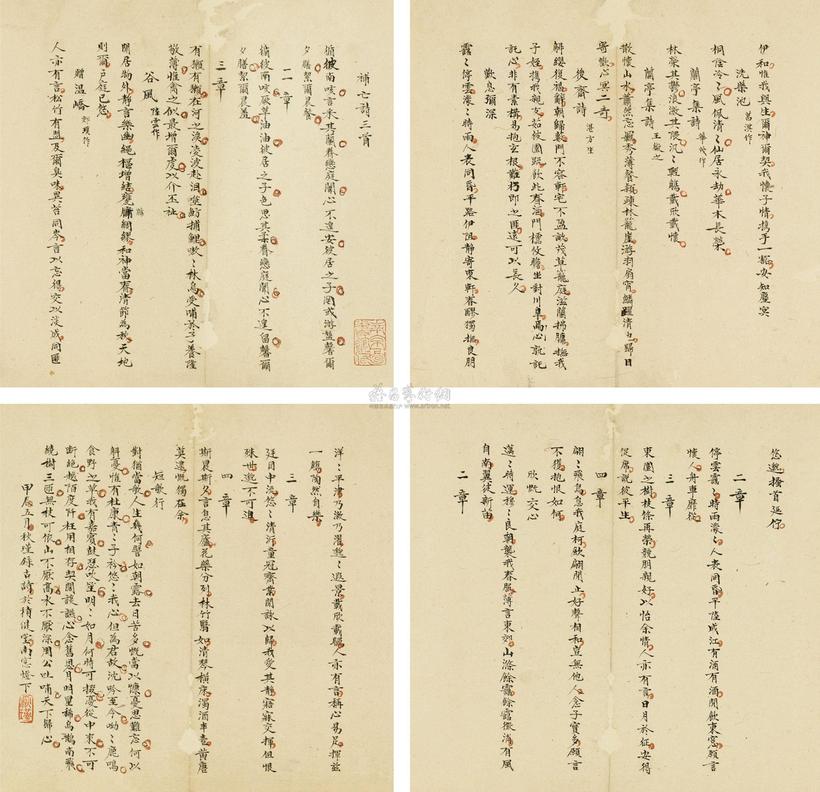 補亡詩三首
循彼南陔言采其蘭眷戀庭闈心不遑安彼居之子罔或游盤馨爾
夕膳絜爾晨餐
二章
循彼南陔厥草油油彼居之子色思其柔眷戀庭闈心不遑留馨爾
夕膳絜爾晨羞
三章
有獺有獺在河之涘凌波赴汨噬魴捕鯉嗷〻林烏受哺于子養隆
敬薄惟禽之似勖增爾虔以介丕祉
谷風 陸雲作
閒居物外靜言樂幽繩樞增結甕牖綢繆和神當春清節為秋天地
則爾戶庭已悠
贈溫嶠 郭璞作
人亦有言松竹有林及爾臭味異苔同岑言以忘得交以淡成同匪
伊和惟我與生爾神爾契我懷子情攜手一壑安知塵冥
洗藥池 葛洪作
桐陰冷〻風佩清〻仙居永劫華木長榮
蘭亭集詩 華茂作
林榮其鬱浪激其隈汎〻輕觴載欣載懷
蘭亭集詩 王徽之
散懷山水蕭然忘羈秀薄粲穎疎林籠崖游羽扇霄鱗躍清池歸目
寄歡心冥二奇
後齋詩 湛方生
解纓復褐辭朝歸藪門不容軒宅不盈畝茂草籠庭滋蘭拂牖撫我
子姪攜我親友茹彼園蔬飲此春酒開櫺攸瞻坐對川阜心焉孰託
託心非有素構易抱玄根難朽即之匪遠可以長久
歎息彌深
靄〻停雲濛〻時雨八表同昏平路伊阻靜寄東軒春醪獨撫良朋
悠邈搔首延佇
二章
停雲靄〻時雨濛〻八表同昏平陸成江有酒有酒閒飲東窗願言
懷人舟車靡從
三章
東園之樹枝條再榮競朋親好以怡余情人亦有言日月於征安得
促席說彼平生
四章
翩〻飛鳥息我庭柯斂翮閒止好聲相和豈無他人念子實多願言
不獲抱恨如何
欣慨交心
邁〻時運穆〻良朝襲我春服薄言東郊山滌餘靄餘靄微消有風
自南翼彼新苗
二章
洋〻平澤乃漱乃濯邈〻遐景載欣載矚人亦有言稱心易足揮茲
一觴陶然自樂
三章
延目中流悠〻清沂童冠齊業閒詠以歸我愛其靜寤寐交揮但恨
殊世邈不可追
四章
斯晨斯夕言息其廬花藥分列林竹翳如清琴橫床濁酒半壺黃唐
莫逮慨獨在余
短歌行
對酒當歌人生幾何譬如朝露去日苦多慨當以慷憂思難忘何以
解憂惟有杜康青〻子衿悠〻我心但為君故沈吟至今呦〻鹿鳴
食野之苹我有嘉賓鼓瑟吹笙明〻如月何時可掇憂從中來不可
斷絕越陌度阡枉用相存契闊談讌心念舊恩月明星稀烏鵲南飛
繞樹三匝無枝可依山不厭高水不厭深周公吐哺天下歸心
甲辰五月秋瑾錄古詩於積健堂南窗燈下